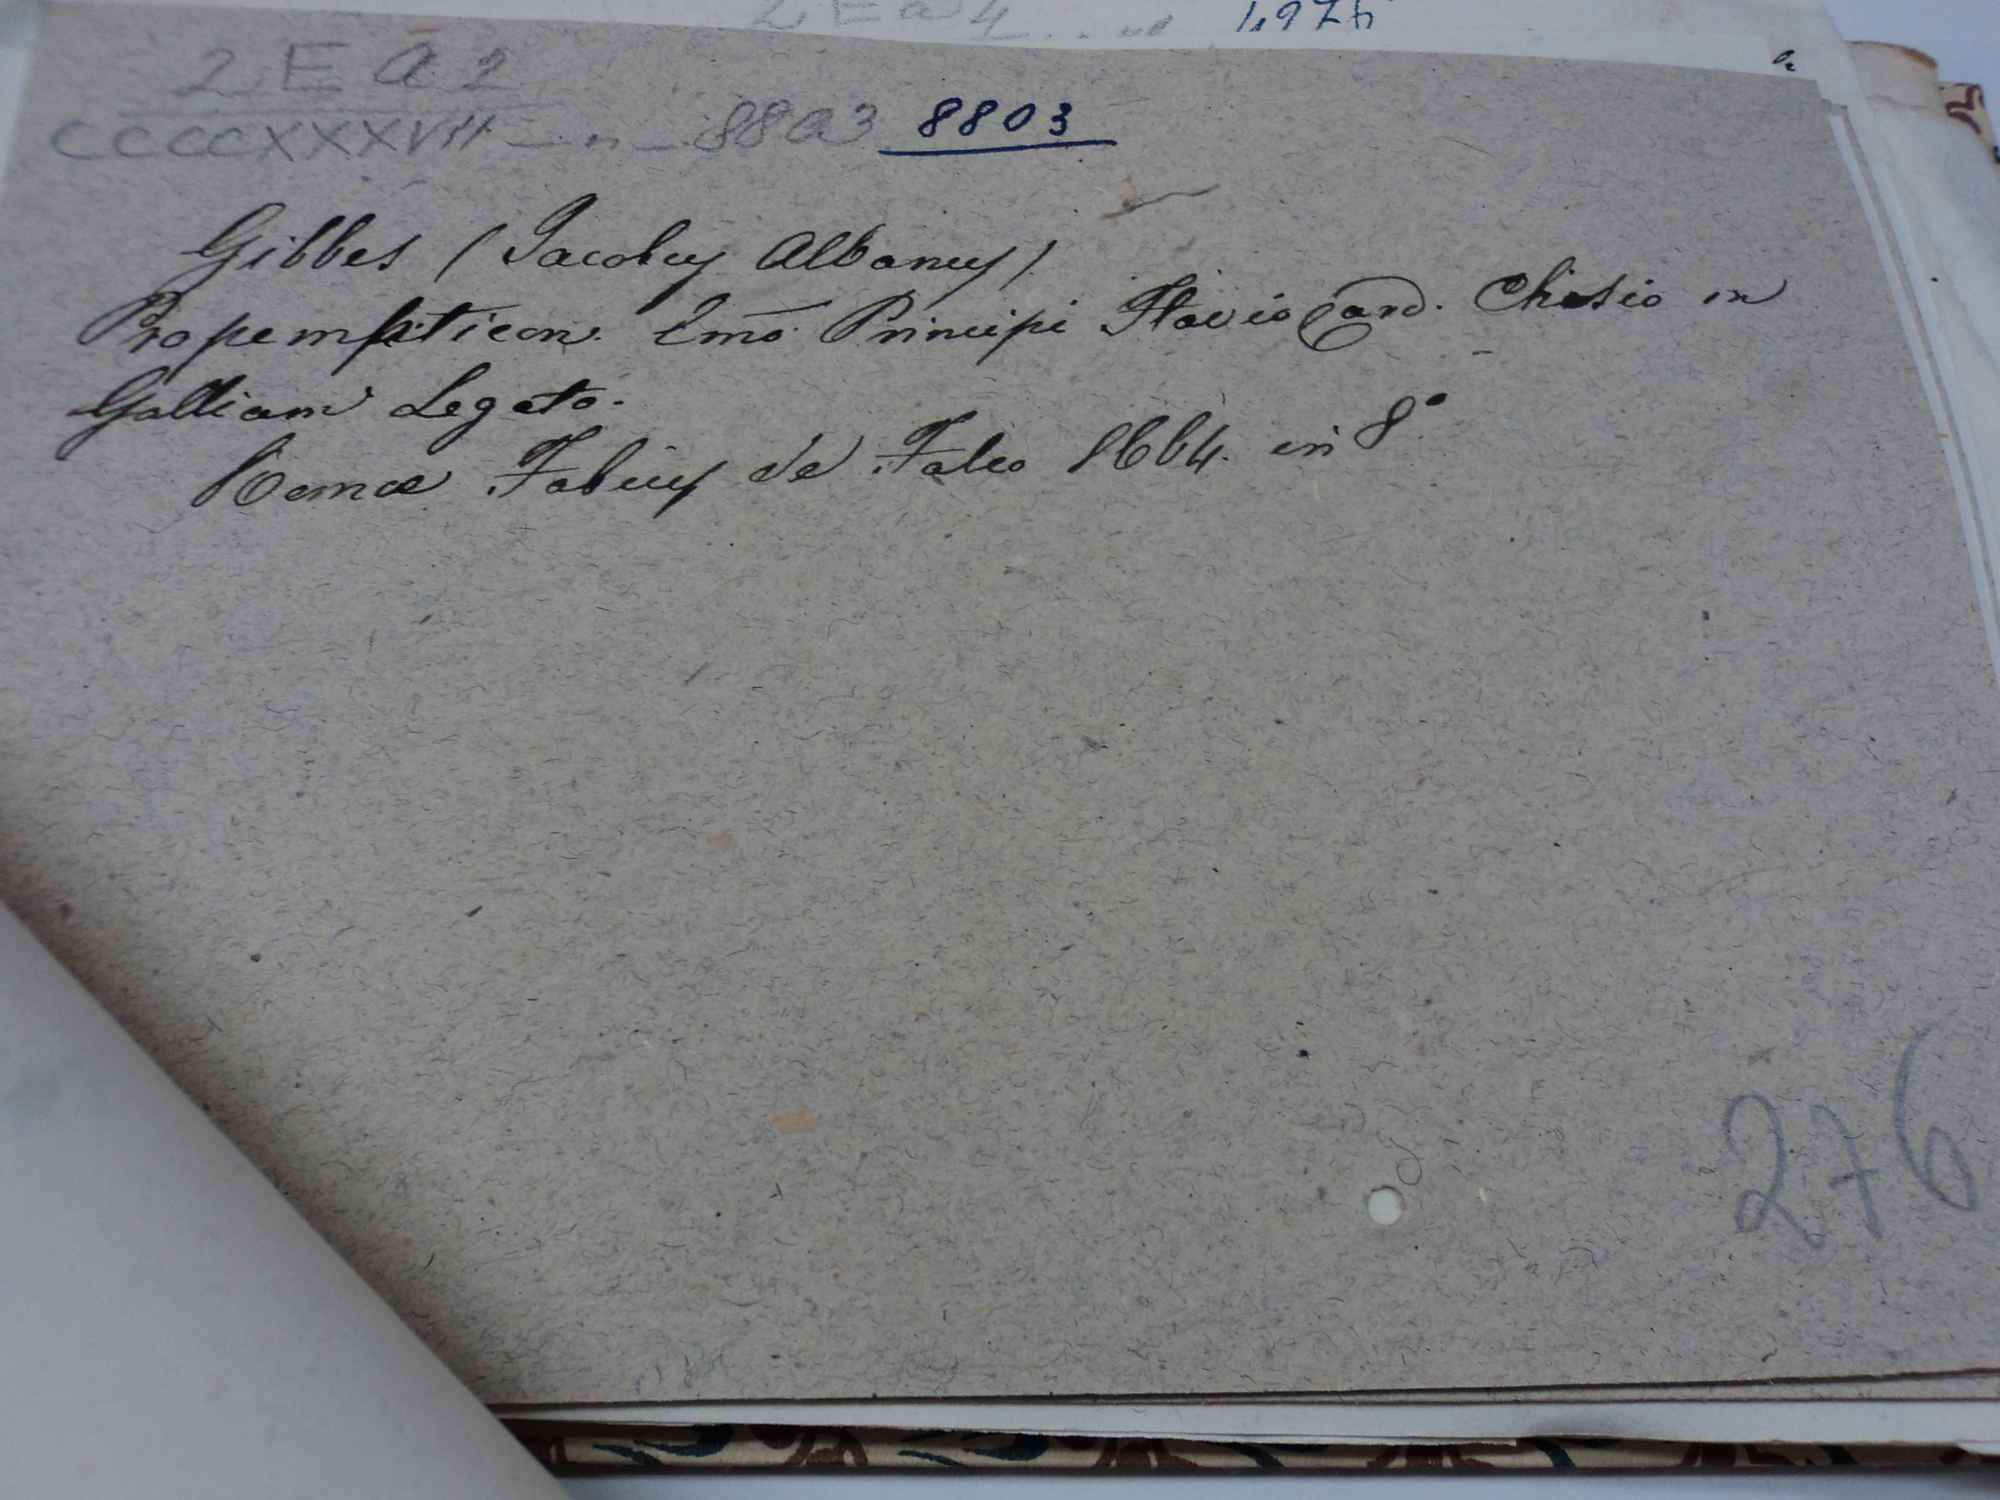 2 E a 4 4974
2 E a 2
CCCCXXXVII - n - 8803 8803
Gibbes (Jacobus Albanus)
Propempticon. Emō Principi Flavio Card. Chisio in
Galliam Legato.
Romæ Fabius de Falco 1664. in 8°
276